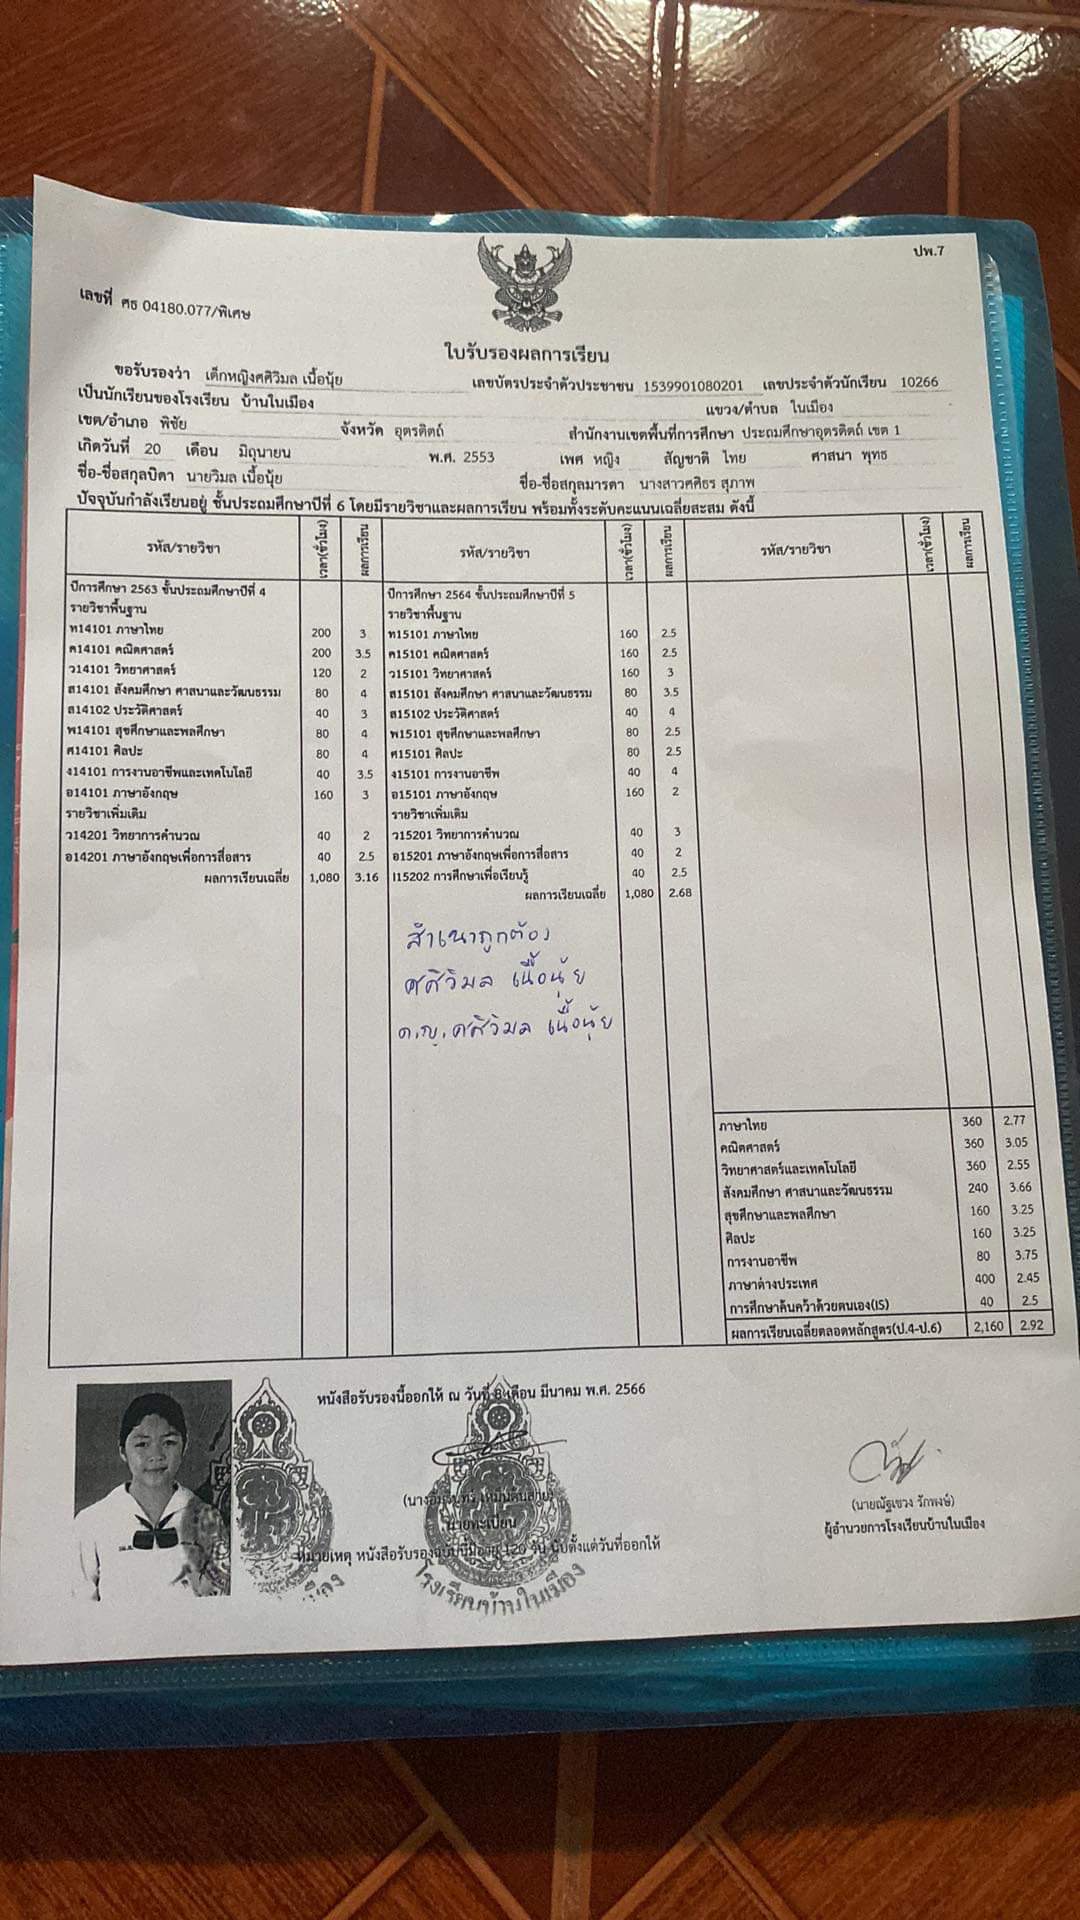 ปพ.7
เลขที่ ศธ 04180.077/พิเศษ
ใบรับรองผลการเรียน
ขอรับรองว่า เด็กหญิงศศิวิมล เนื้อนุ้ย เลขบัตรประจำตัวประชาชน 1539901080201 เลขประจำตัวนักเรียน 10266
เป็นนักเรียนของโรงเรียน บ้านในเมือง แขวง/ตำบล ในเมือง
เขต/อำเภอ พิชัย จังหวัด อุตรดิตถ์ สำนักงานเขตพื้นที่การศึกษา ประถมศึกษาอุตรดิตถ์ เขต 1
เกิดวันที่ 20 เดือน มิถุนายน พ.ศ. 2553 เพศ หญิง สัญชาติ ไทย ศาสนา พุทธ
ชื่อ-ชื่อสกุลบิดา นายวิมล เนื้อนุ้ย ชื่อ-ชื่อสกุลมารดา นางสาวศศิธร สุภาพ
ปัจจุบันกำลังเรียนอยู่ ชั้นประถมศึกษาปีที่ 6 โดยมีรายวิชาและผลการเรียน พร้อมทั้งระดับคะแนนเฉลี่ยสะสม ดังนี้
รหัส/รายวิชา เวลา(ชั่วโมง) ผลการเรียน รหัส/รายวิชา เวลา(ชั่วโมง) ผลการเรียน รหัส/รายวิชา เวลา(ชั่วโมง) ผลการเรียน
ปีการศึกษา 2563 ชั้นประถมศึกษาปีที่ 4
รายวิชาพื้นฐาน
ท14101 ภาษาไทย 200 3
ค14101 คณิตศาสตร์ 200 3.5
ว14101 วิทยาศาสตร์ 120 2
ส14101 สังคมศึกษา ศาสนาและวัฒนธรรม 80 4
ส14102 ประวัติศาสตร์ 40 3
พ14101 สุขศึกษาและพลศึกษา 80 4
ศ14101 ศิลปะ 80 4
ง14101 การงานอาชีพและเทคโนโลยี 40 3.5
อ14101 ภาษาอังกฤษ 160 3
รายวิชาเพิ่มเติม
ว14201 วิทยาการคำนวณ 40 2
อ14201 ภาษาอังกฤษเพื่อการสื่อสาร 40 2.5
ผลการเรียนเฉลี่ย 1,080 3.16
ปีการศึกษา 2564 ชั้นประถมศึกษาปีที่ 5
รายวิชาพื้นฐาน
ท15101 ภาษาไทย 160 2.5
ค15101 คณิตศาสตร์ 160 2.5
ว15101 วิทยาศาสตร์ 160 3
ส15101 สังคมศึกษา ศาสนาและวัฒนธรรม 80 3.5
ส15102 ประวัติศาสตร์ 40 4
พ15101 สุขศึกษาและพลศึกษา 80 2.5
ศ15101 ศิลปะ 80 2.5
ง15101 การงานอาชีพ 40 4
อ15101 ภาษาอังกฤษ 160 2
รายวิชาเพิ่มเติม
ว15201 วิทยาการคำนวณ 40 3
อ15201 ภาษาอังกฤษเพื่อการสื่อสาร 40 2
I15202 การศึกษาเพื่อเรียนรู้ 40 2.5
ผลการเรียนเฉลี่ย 1,080 2.68
สำเนาถูกต้อง
ศศิวิมล เนื้อนุ้ย
ด.ญ.ศศิวิมล เนื้อนุ้ย
ภาษาไทย 360 2.77
คณิตศาสตร์ 360 3.05
วิทยาศาสตร์และเทคโนโลยี 360 2.55
สังคมศึกษา ศาสนาและวัฒนธรรม 240 3.66
สุขศึกษาและพลศึกษา 160 3.25
ศิลปะ 160 3.25
การงานอาชีพ 80 3.75
ภาษาต่างประเทศ 400 2.45
การศึกษาค้นคว้าด้วยตนเอง(IS) 40 2.5
ผลการเรียนเฉลี่ยตลอดหลักสูตร(ป.4-ป.6) 2,160 2.92
หนังสือรับรองนี้ออกให้ ณ วันที่ 8 เดือน มีนาคม พ.ศ. 2566
นายทะเบียน
(นายณัฐเขวง รักพงษ์)
ผู้อำนวยการโรงเรียนบ้านในเมือง
หมายเหตุ หนังสือรับรองฉบับนี้มีอายุ 120 วัน นับตั้งแต่วันที่ออกให้
โรงเรียนบ้านในเมือง